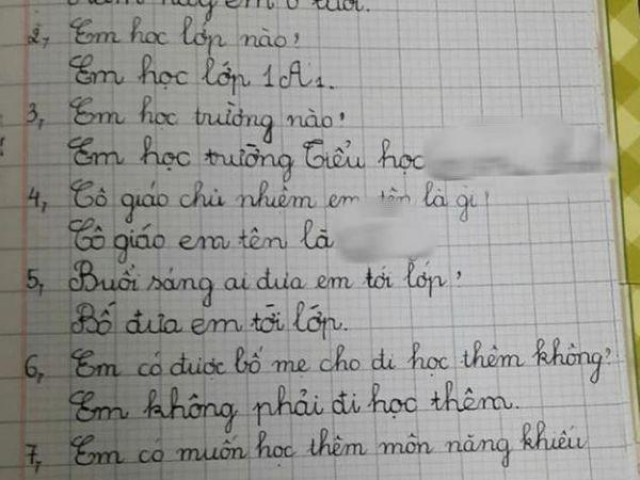 em 6 tuổi.
2, Em học lớp nào?
Em học lớp 1A1.
3, Em học trường nào?
Em học trường Tiểu học
4, Cô giáo chủ nhiệm em tên là gì?
Cô giáo em tên là
5, Buổi sáng ai đưa em tới lớp?
Bố đưa em tới lớp.
6, Em có được bố mẹ cho đi học thêm không?
Em không phải đi học thêm.
7, Em có muốn học thêm môn năng khiếu